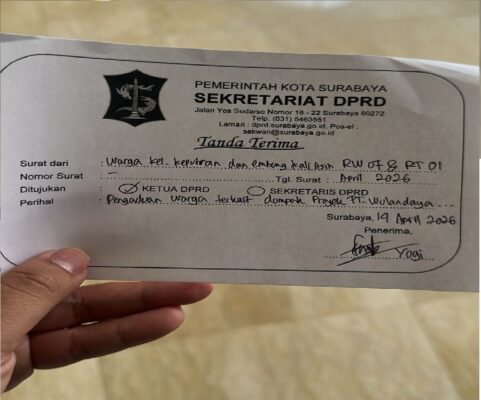 PEMERINTAH KOTA SURABAYA
SEKRETARIAT DPRD
Jalan Yos Sudarso Nomor 18 - 22 Surabaya 60272
Telp. (031) 5463551
Laman : dprd.surabaya.go.id, Pos-el :
sekwan@surabaya.go.id
Tanda Terima
Surat dari : Warga kel. keputran dan embong kali Asin RW 07 & RT 01
Nomor Surat : – Tgl. Surat : April 2026
Ditujukan : KETUA DPRD SEKRETARIS DPRD
Perihal : Pengaduan warga terkait dampak Proyek PT. Wulandaya ...
Surabaya, 14 April 2026
Penerima,
Yogi